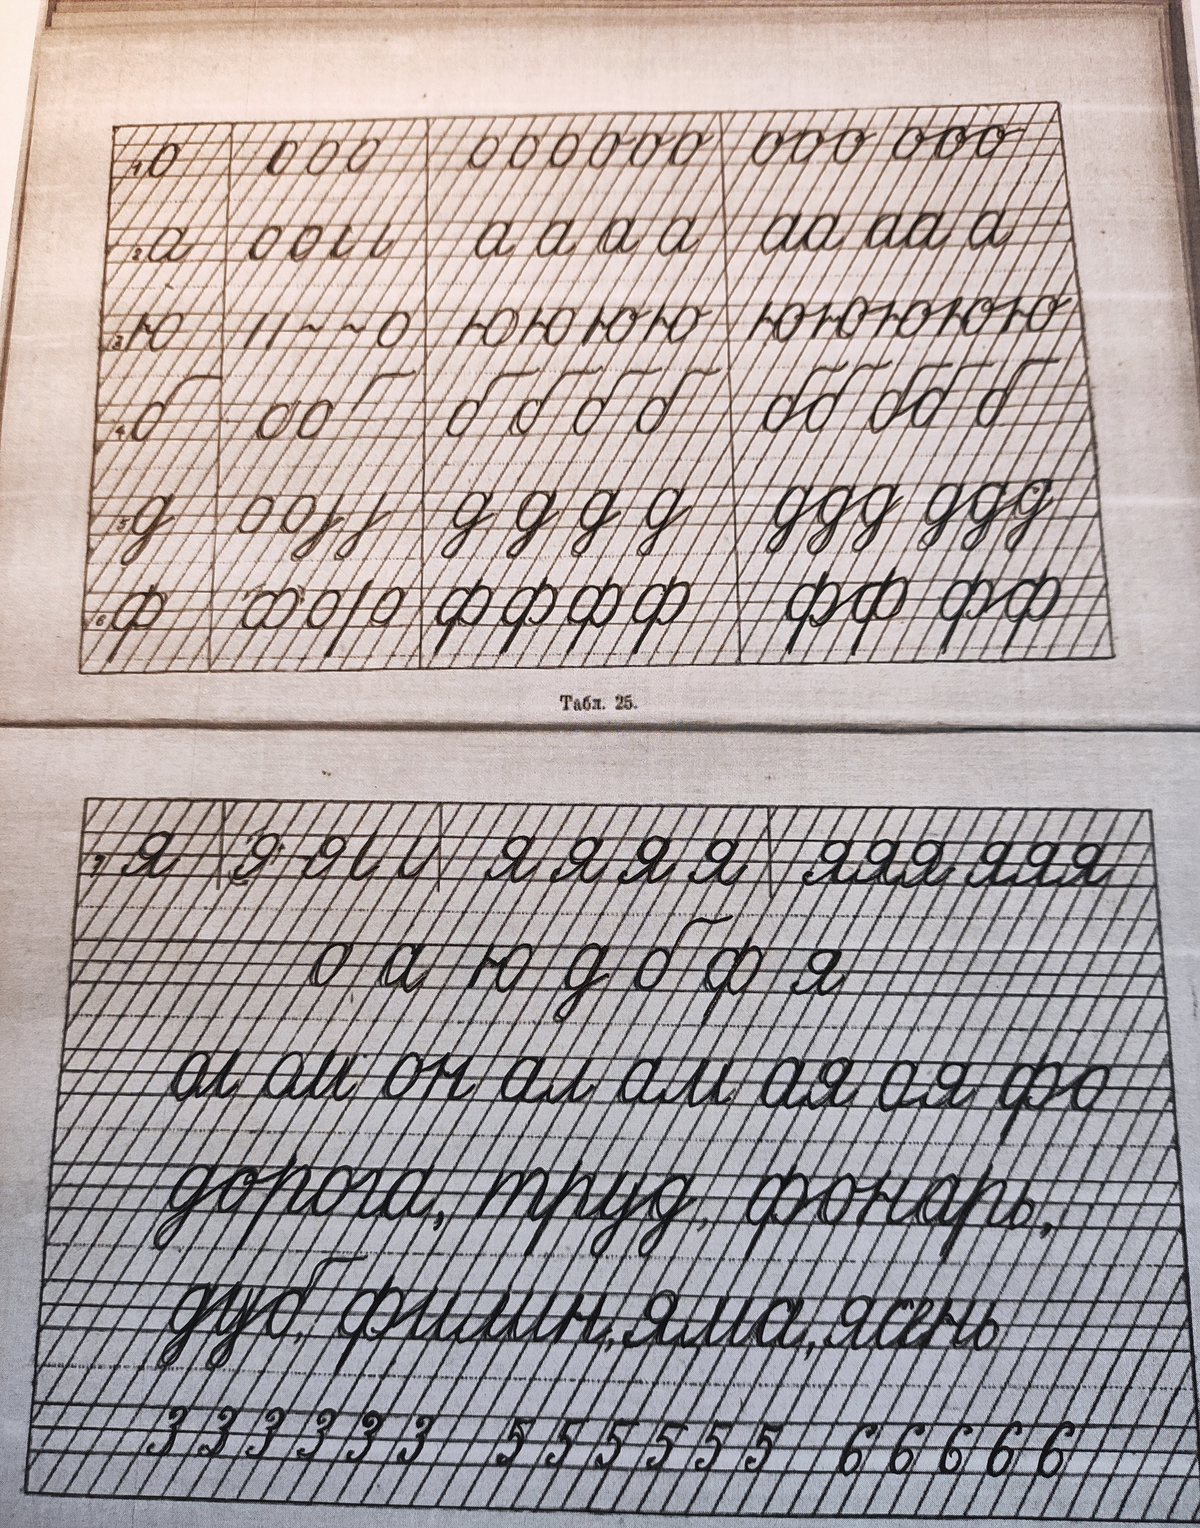 1 о о о о о о о о о о о о о о о о
2 а о о ι ι а а а а аа аа а
3 ю ι ι ~ ~ о ю ю ю ю ююююю
4 б о о б б б б бб бб б
5 д о о д д д д ддд ддд
6 ф о ф ф ф ф фф фф
Табл. 25.
7 я я я ι ι я я я я яяя яяя
о а ю д б ф я
ол ом он ал ам ая оя фо
дорога, труд, фонарь,
дуб, филин, яма, ясень
3 3 3 3 3 3 5 5 5 5 5 5 6 6 6 6 6